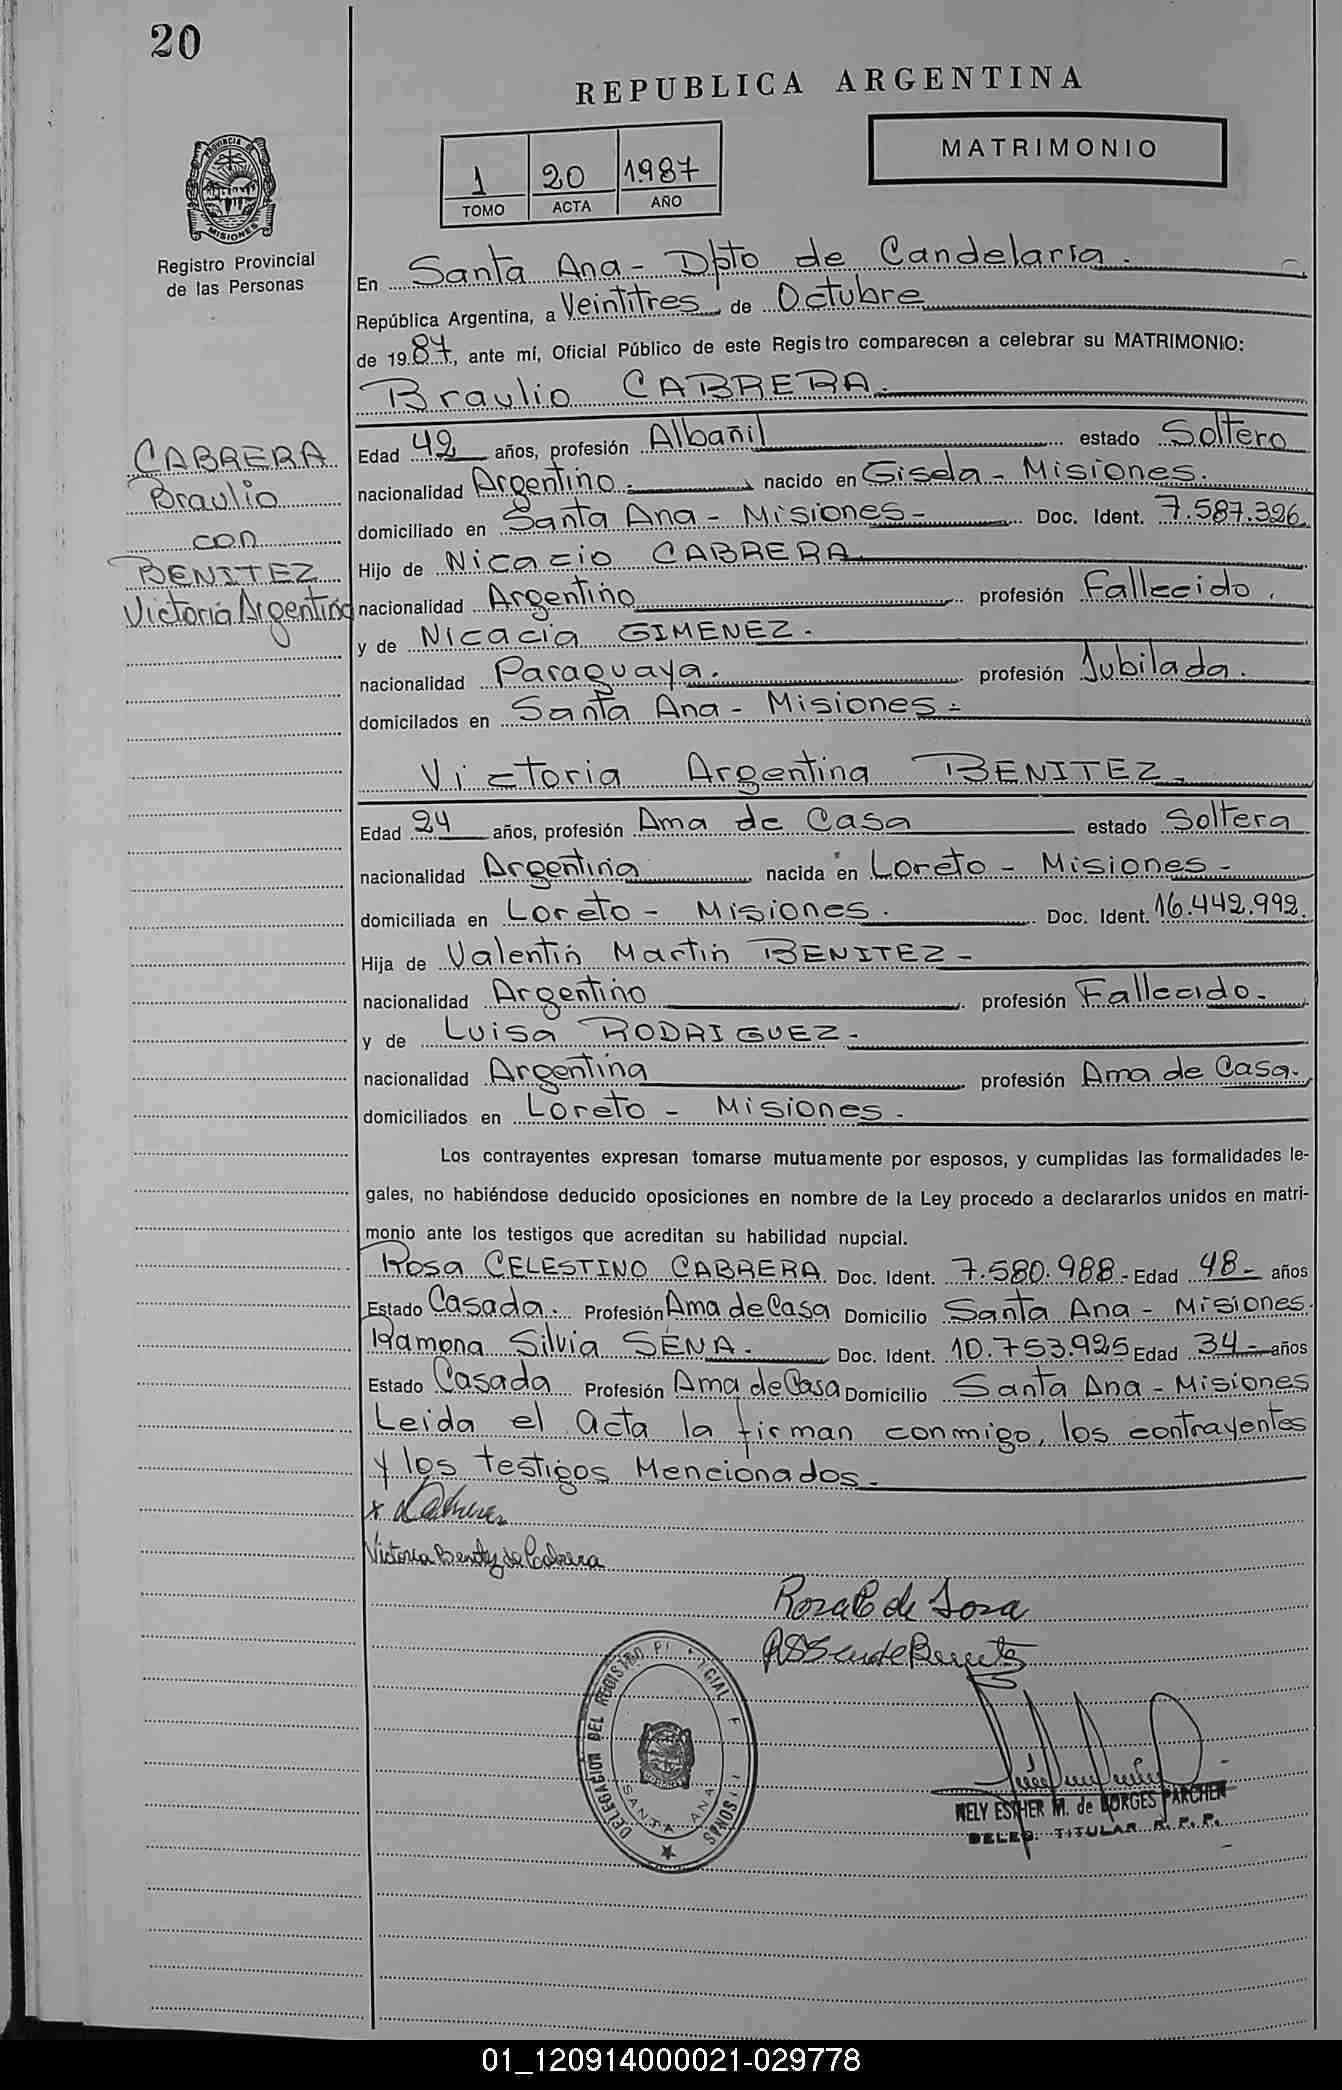 20
REPUBLICA ARGENTINA
MATRIMONIO
1 20 1987
TOMO ACTA AÑO
PROVINCIA DE MISIONES
Registro Provincial
de las Personas
En Santa Ana - Dpto de Candelaria.
República Argentina, a Veintitres de Octubre
de 1987, ante mí, Oficial Público de este Registro comparecen a celebrar su MATRIMONIO:
Braulio CABRERA.
CABRERA
Braulio
con
BENITEZ
Victoria Argentina
Edad 42 años, profesión Albañil estado Soltero
nacionalidad Argentino. nacido en Gisela - Misiones.
domiciliado en Santa Ana - Misiones - Doc. Ident. 7.587.326
Hijo de Nicacio CABRERA
nacionalidad Argentino profesión Fallecido.
y de Nicacia GIMENEZ.
nacionalidad Paraguaya. profesión Jubilada.
domicilados en Santa Ana - Misiones.
Victoria Argentina BENITEZ.
Edad 24 años, profesión Ama de Casa estado Soltera
nacionalidad Argentina nacida en Loreto - Misiones -
domiciliada en Loreto - Misiones. Doc. Ident. 16.442.992.
Hija de Valentin Martin BENITEZ -
nacionalidad Argentino profesión Fallecido.
y de Luisa RODRIGUEZ.
nacionalidad Argentina profesión Ama de Casa.
domiciliados en Loreto - Misiones.
Los contrayentes expresan tomarse mutuamente por esposos, y cumplidas las formalidades le-
gales, no habiéndose deducido oposiciones en nombre de la Ley procedo a declararlos unidos en matri-
monio ante los testigos que acreditan su habilidad nupcial.
Rosa CELESTINO CABRERA Doc. Ident. 7.580.988.- Edad 48- años
Estado Casada. Profesión Ama de Casa Domicilio Santa Ana - Misiones.
Ramona Silvia SENA. Doc. Ident. 10.753.925 Edad 34- años
Estado Casada Profesión Ama de Casa Domicilio Santa Ana - Misiones
Leida el acta la firman conmigo, los contrayentes
y los testigos Mencionados.
x Cabrera
Victoria Benitez de Cabrera
Rosa C de Sosa
de Benitez
DELEGACION DEL REGISTRO
SANTA ANA
NELY ESTHER M. de BORGES PARCHEN
DELEG. TITULAR R. P. P.
01_120914000021-029778